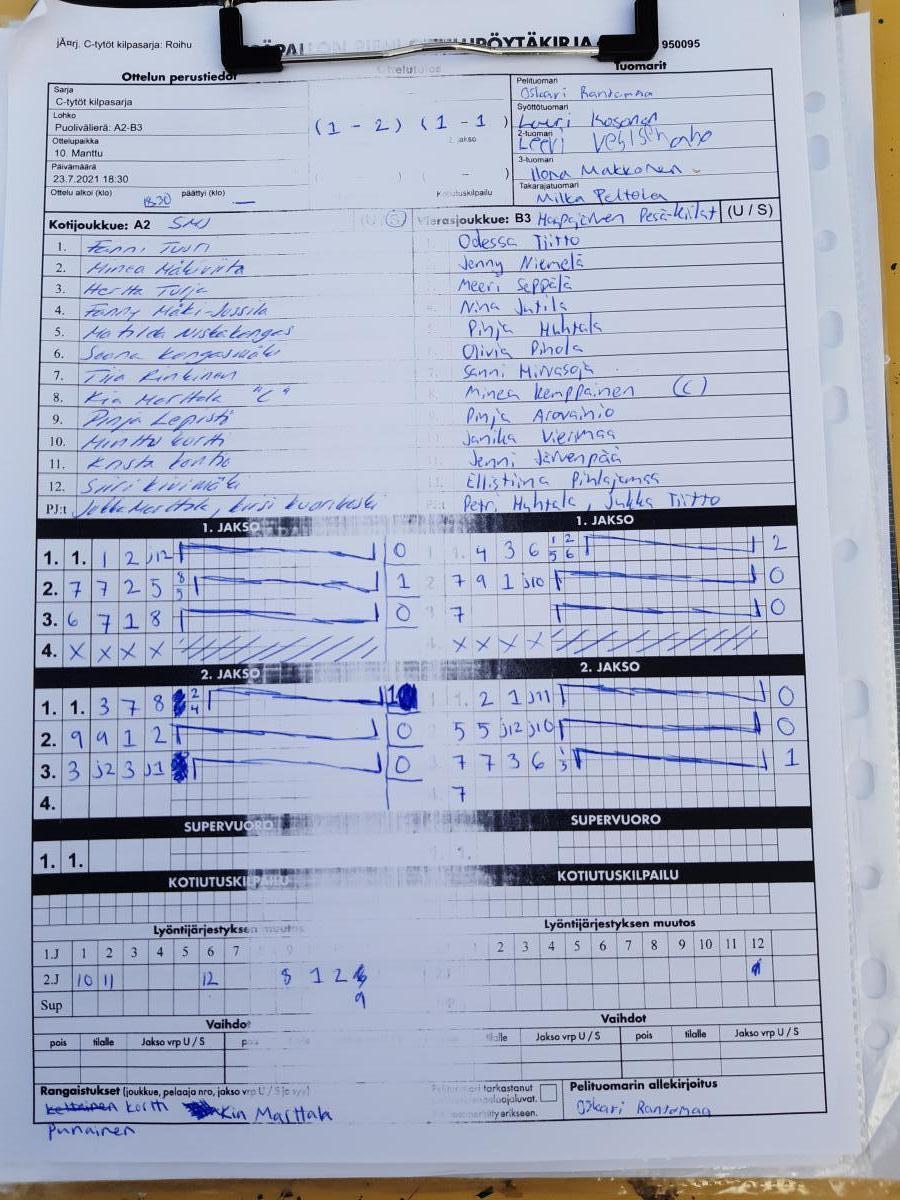 jÃ¤rj. C-tytöt kilpasarja: Roihu
950095
Ottelun perustiedot
Tuomarit
Sarja
C-tytöt kilpasarja
Lohko
Puolivälierä: A2-B3
Ottelupaikka
10. Manttu
Päivämäärä
23.7.2021 18:30
Ottelu alkoi (klo) 1830 päättyi (klo) —
(1 - 2) (1 - 1)
Pelituomari
Oskari Rantamaa
Syöttötuomari
Lauri Kosonen
2-tuomari
3-tuomari
Ilona Makkonen
Takarajatuomari
Milka Peltola
Kotijoukkue: A2 SMJ (U / S)
Vierasjoukkue: B3 Haapajärven Pesä-Kiilat (U / S)
1. Fanni Tuuri
Odessa Tiitto
2. Minea Mäkiviita
Jenny Niemelä
3. Hertta Turja
Meeri Seppälä
4. Fanny Mäki-Jussila
Nina Jutila
5. Matilda Niskakangas
Pinja Huhtala
6. Seona Kangasmäki
Olivia Pihola
7. Tiia Rinkinen
Sanni Hirvasoja
8. Kia Marttala "C"
Minea Kemppainen (C)
9. Pinja Lepistö
Pinja Arovainio
10. Minttu Kortti
Janika Viermaa
11. Krista Kontio
Jenni Järvenpää
12. Siiri Kivimäki
Ellistiina Pihlajamaa
PJ:t Jukka Marttala,
Petri Huhtala, Jukka Tiitto
1. JAKSO
1. JAKSO
1. 1. 1 2 j12 0
1. 4 3 6 1 5 2 6 2
2. 7 7 2 5 8 5 1
7 9 1 j10 0
3. 6 7 1 8 0
7 0
4. X X X X
X X X X
2. JAKSO
2. JAKSO
1. 1. 3 7 8 2 4 1
1. 2 1 j11 0
2. 9 9 1 2 0
5 5 j12 j10 0
3. 3 j2 3 j1 0
7 7 3 6 1 3 1
4.
7
SUPERVUORO
SUPERVUORO
1. 1.
KOTIUTUSKILPAILU
KOTIUTUSKILPAILU
Lyöntijärjestyksen muutos
Lyöntijärjestyksen muutos
1.J 1 2 3 4 5 6 7
2 3 4 5 6 7 8 9 10 11 12
2.J 10 11 12 8 1 2
9
Sup
Vaihdot
Vaihdot
pois tilalle Jakso vrp U / S
tilalle Jakso vrp U / S pois tilalle Jakso vrp U / S
Rangaistukset (joukkue, pelaaja nro, jakso vrp U / S
keltainen kortti Kia Marttala
punainen
tarkastanut
erikseen.
Pelituomarin allekirjoitus
Oskari Rantamaa